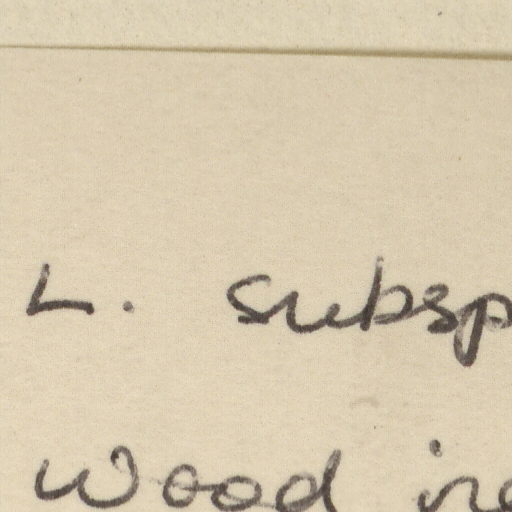 L. subsp
Wood